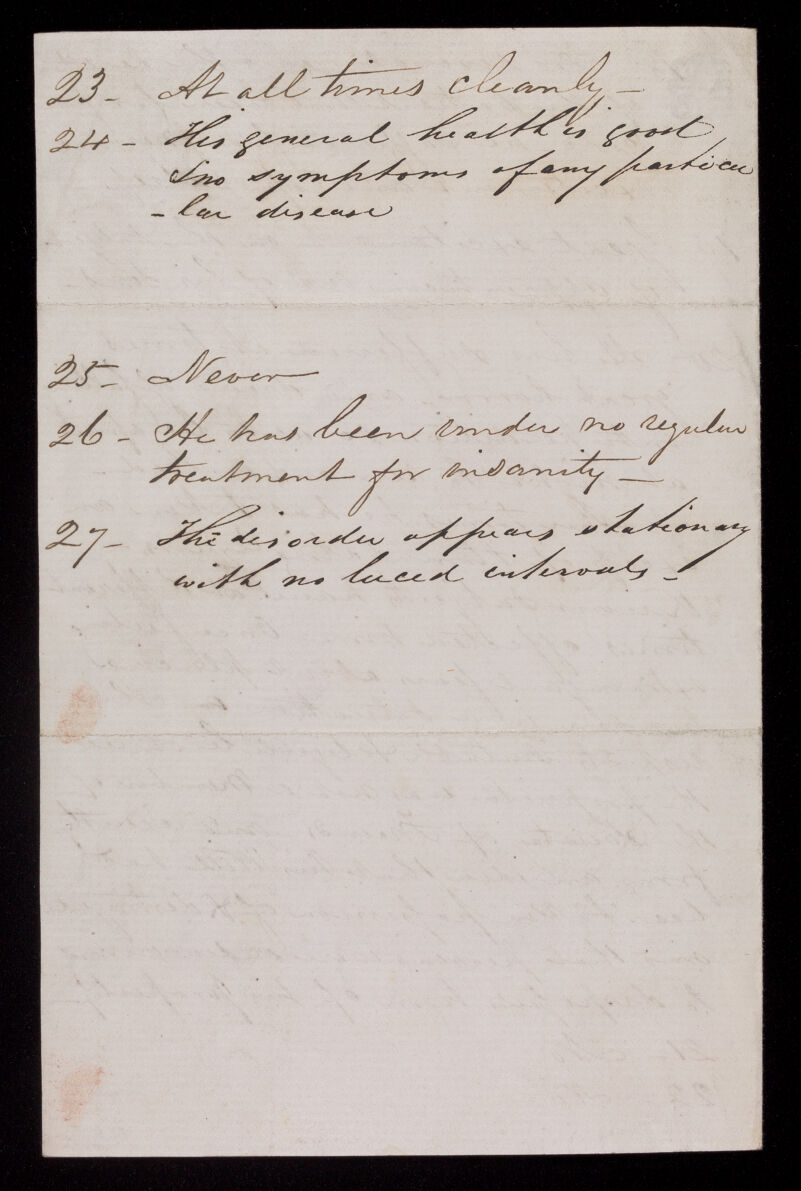 23- At all times cleanly -
24 - His general health is good
& no symptoms of any particu
- lar disease
25 - Never
26 - He has been under no regular
treatment for insanity -
27 - The disorder appears stationary
with no luced intervals -